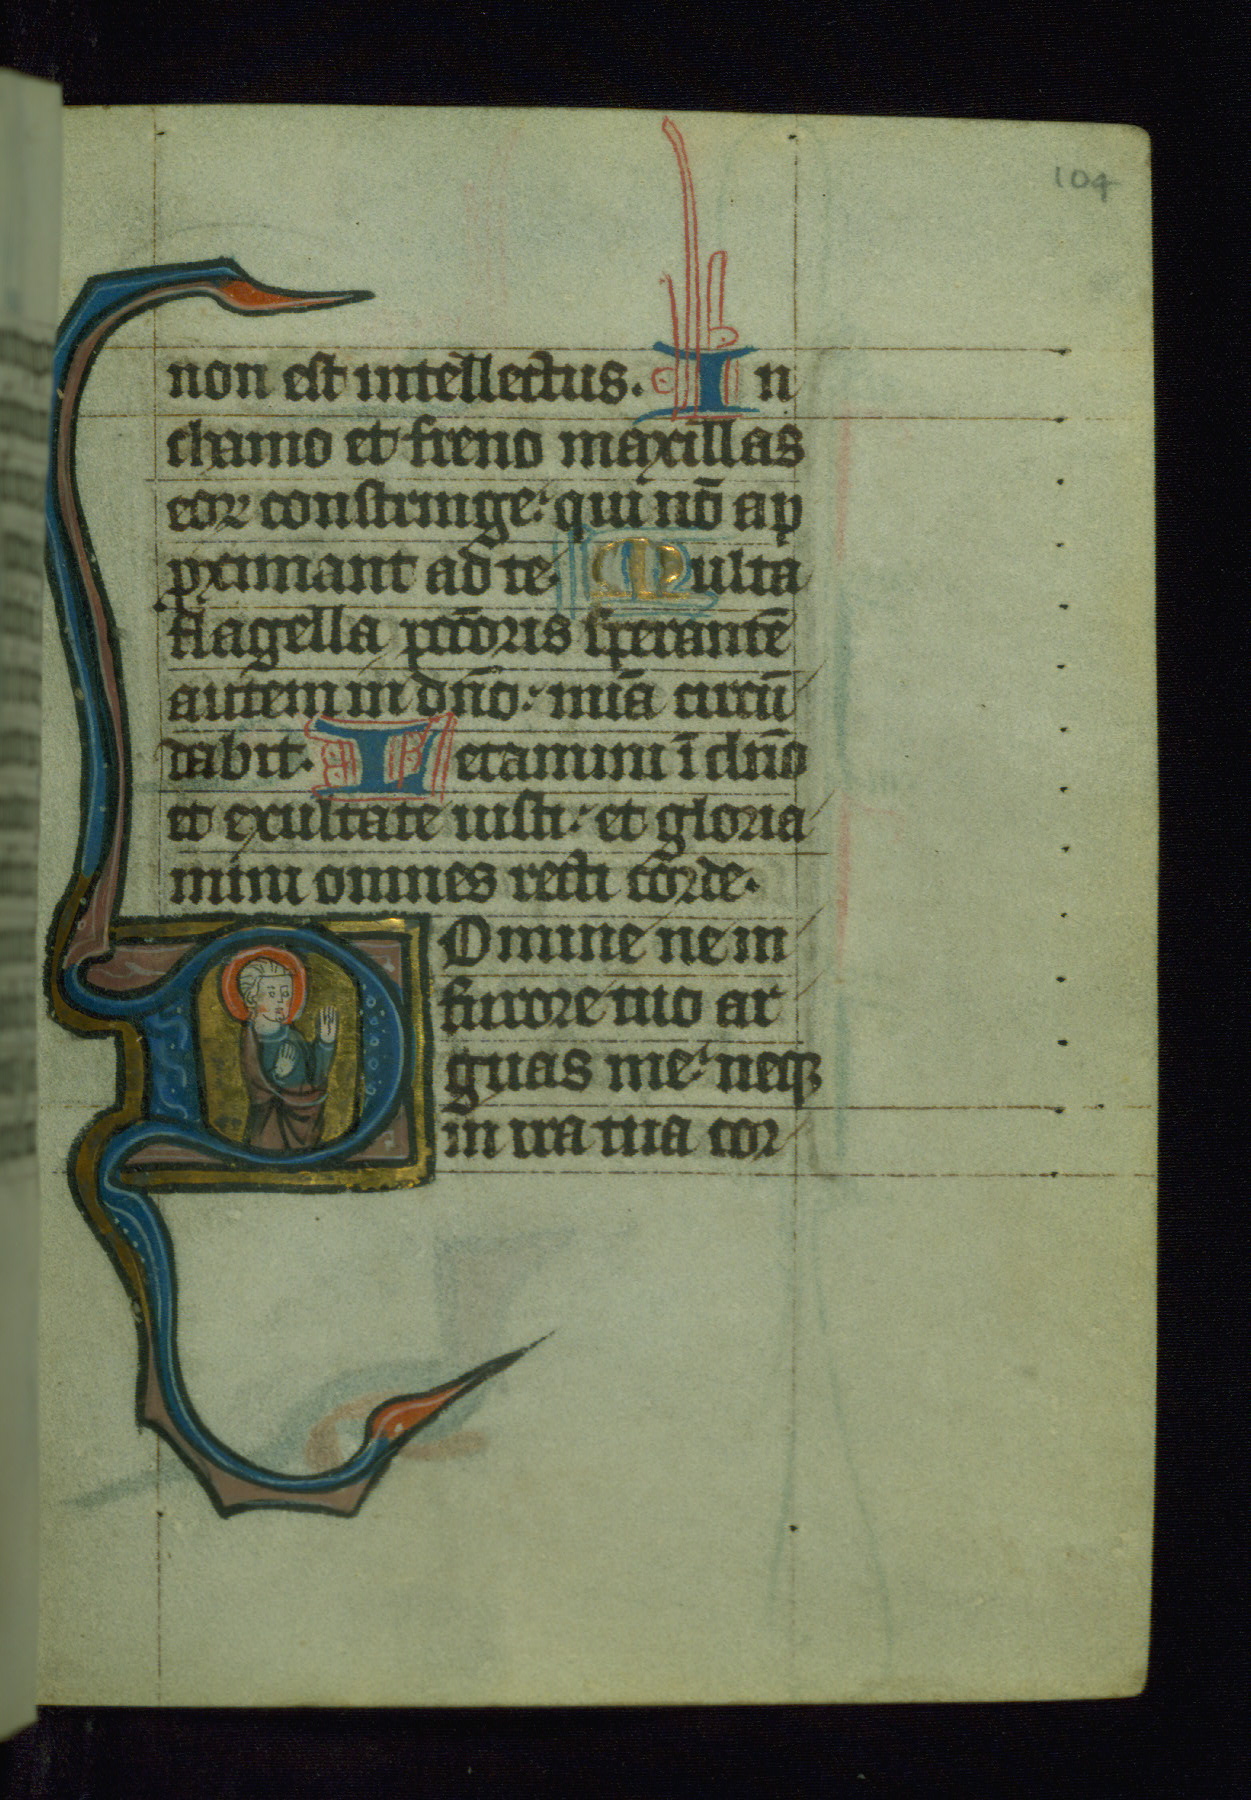 104
non est intellectus. In
chamo et freno maxillas
eoꝝ constringe: qui nō ap
ꝓximant ad te. Multa
flagella pctōris sperantē
autem in dn̄o: mīa circū
dabit. Letamini ī dn̄o
et exultate iusti: et gloria
mini omnes recti corde.
Domine ne in
furore tuo ar
guas me: neqꝫ
in ira tua cor